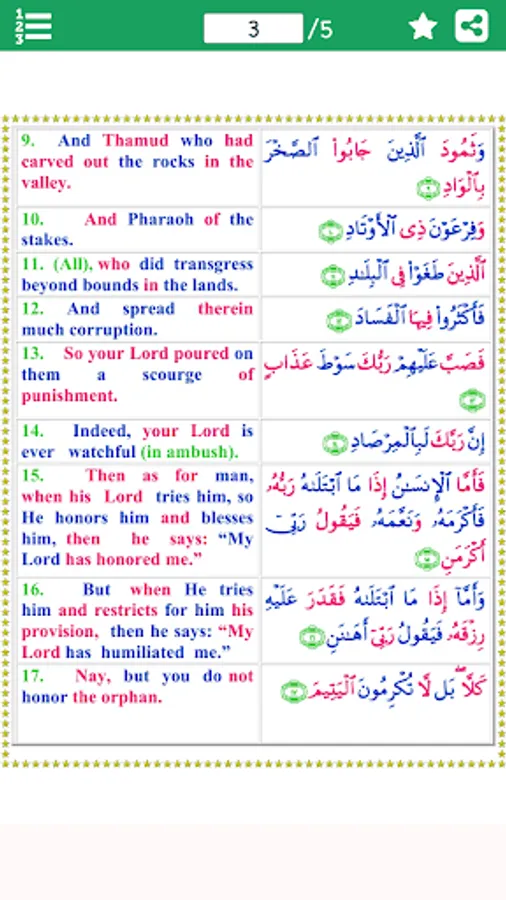 1
2
3
3
/5
9. And Thamud who had
carved out the rocks in the
valley.
وَثَمُودَ ٱلَّذِينَ جَابُوا۟ ٱلصَّخْرَ
بِٱلْوَادِ ٩
10. And Pharaoh of the
stakes.
وَفِرْعَوْنَ ذِى ٱلْأَوْتَادِ
11. (All), who did transgress
beyond bounds in the lands.
ٱلَّذِينَ طَغَوْا۟ فِى ٱلْبِلَٰدِ
12. And spread therein
much corruption.
فَأَكْثَرُوا۟ فِيهَا ٱلْفَسَادَ
13. So your Lord poured on
them a scourge of
punishment.
فَصَبَّ عَلَيْهِمْ رَبُّكَ سَوْطَ عَذَابٍ
14. Indeed, your Lord is
ever watchful (in ambush).
إِنَّ رَبَّكَ لَبِٱلْمِرْصَادِ
15. Then as for man,
when his Lord tries him, so
He honors him and blesses
him, then he says: “My
Lord has honored me.”
فَأَمَّا ٱلْإِنسَٰنُ إِذَا مَا ٱبْتَلَىٰهُ رَبُّهُۥ
فَأَكْرَمَهُۥ وَنَعَّمَهُۥ فَيَقُولُ رَبِّىٓ
أَكْرَمَنِ
16. But when He tries
him and restricts for him his
provision, then he says: “My
Lord has humiliated me.”
وَأَمَّآ إِذَا مَا ٱبْتَلَىٰهُ فَقَدَرَ عَلَيْهِ
رِزْقَهُۥ فَيَقُولُ رَبِّىٓ أَهَٰنَنِ
17. Nay, but you do not
honor the orphan.
كَلَّا ۖ بَل لَّا تُكْرِمُونَ ٱلْيَتِيمَ